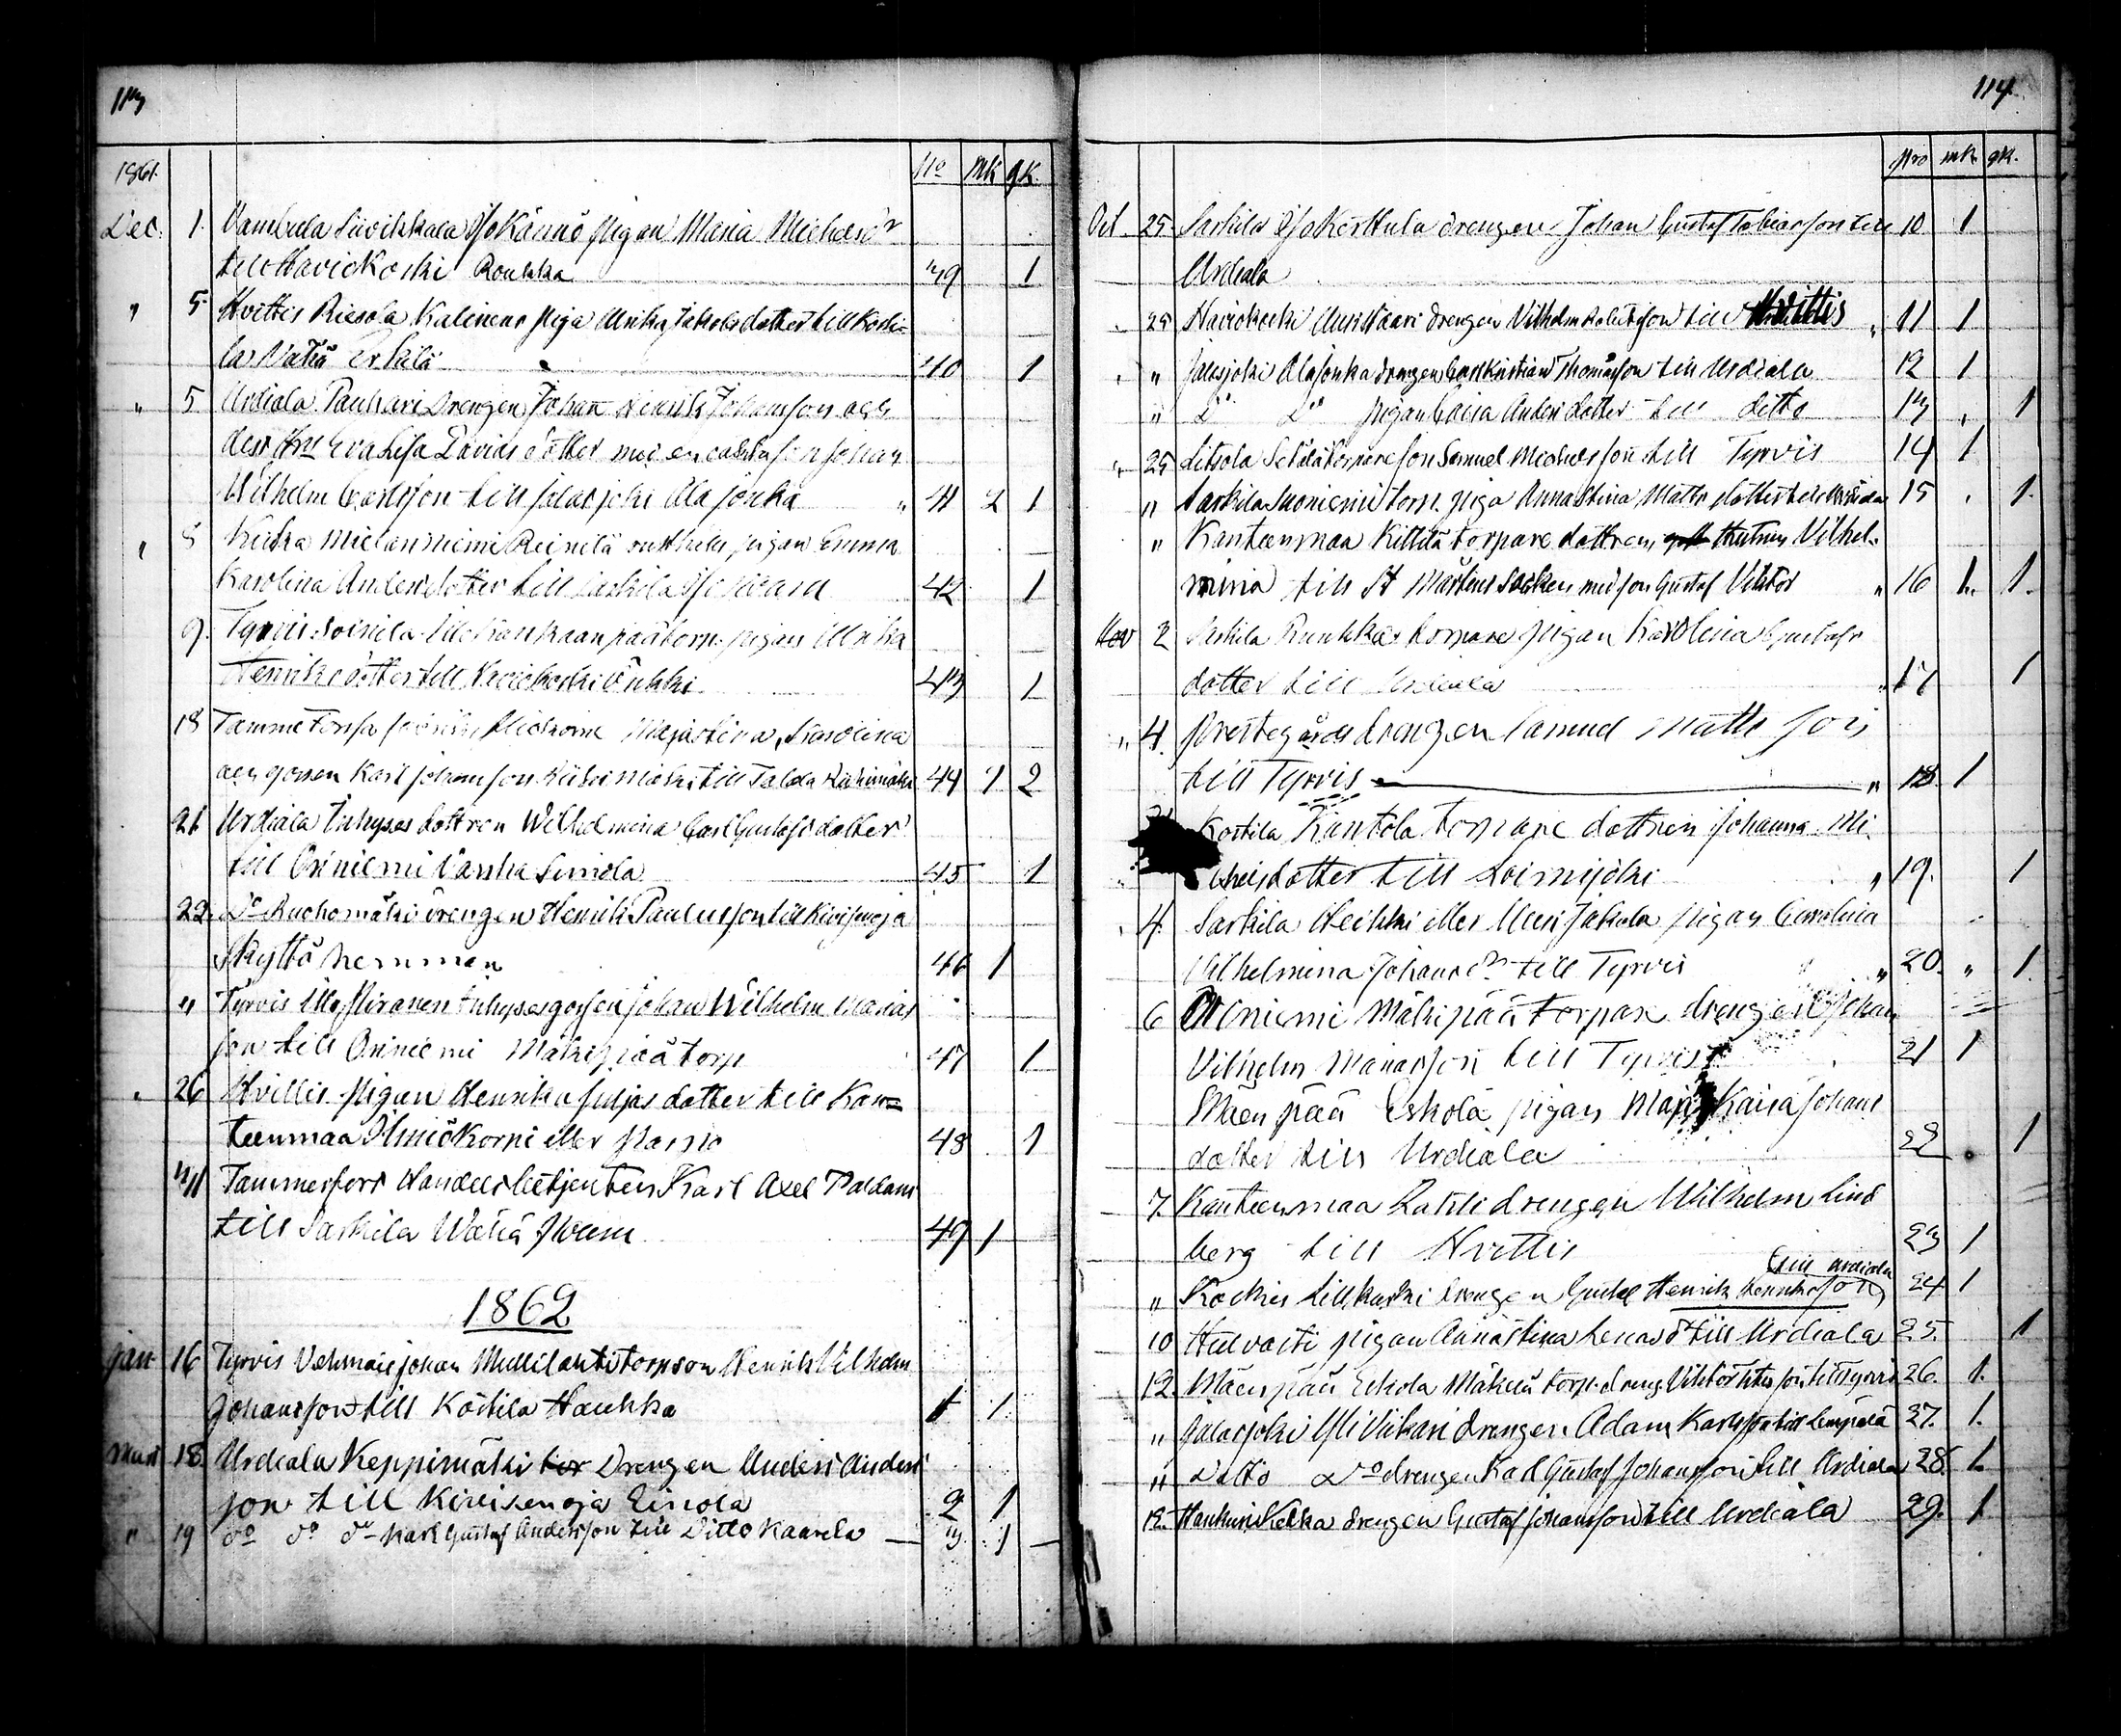 113
1861. No mk qk.
Dec. 1. Vambula Suvikkala Kännö pigan Maria Michelsd:r
till Haviokoski Roukka 39 1
" 5. Hvittis Riesola Kalineno piga Ulrika Jakobsdotter till Kosti=
la Vähä Erkilä 40 1
" 5 Urdiala Pauhari Drengen Johan Henrik Johansson och
dess Hru Eva Lisa Davids dotter med en oäkta son Johan
Wilhelm Carlsson till Jalasjoki Ala Jonka " 41 2 1
" 8 Kiikka pigan Emma
Karolina Andersdotter till Sarkila 42 1
9. Tyrvis torp. pigan Ulrika
Henriksdotter till Haviokoski Ukki 43 1
18 Tammefors Maja Stina, Karolina
och gossen Karl Johansson till 44 1 2
21 Urdiala Inhyses dottren Wilhelmina Carl Gustafs dotter
till Oriniemi Vanha Simola 45 1
22. D:o Ruohomäki drengen Henrik Paulusson till Kivisenoja
Skyttä hemman 46 1
" Tyrvis Illo Piranen Inhyses gossen Johan Wilhelm Manas
son till Oriniemi Mäkipää torp 47 1
" 26 Hvittis pigan Henrika Juljas dotter till Kan=
teenmaa Yliniskorpi eller 48 1
Tammerfors Handels betjenten Karl Axel Paldani
till Sarkila Vähä 49 1
1862
Jan 16 Tyrvis Vehmais Johan Mullilantti torpson Henrik Vilhelm
Johansson till Köstila Haukka 1 1
Mars 18. Urdiala Keppimäki Drengen Anders Anders
son till Kivisenoja Einola 2 1
" 19 d:o d:o d:o Karl Gustaf Andersson till Ditto Kaarela 3 1
114.
Nro mk. qk.
Oct. 25. Sarkila Kerttula drengen Johan Gustaf Tobiasson till 10 1
Urdiala
" 25 Haviokoski drengen Vilhelm till Hvittis " 11 1
" " Jalasjoki Ala Jonka drengen Carl Kristian Thomasson till Urdiala 12 1
" D:o D:o pigan Caisa Anders dotter till ditto 13 " 1
" 25 Litsola Torpareson Samuel Michelsson till Tyrvis 14 1
" Sarkila Suoniemi torp. piga Anna Stina Matts dotter till Urdiala 15 " 1.
" Kanteenmaa Kittilä torpare dottren Vilhel=
mina till St Mårtens Socken med son Gustaf Viktor " 16 1.
Nov 2 Sarkila Ruukka torpare pigan Karolina Gustafs
dotter till Urdiala " 17 1
" 4. Prestegårds drengen Samuel Matts son
till Tyrvis " 18. 1
Kostila Kantola torpare dottren Johanna Mi
chelsdotter till Loimijoki " 19. 1
" 4. Sarkila Heikki eller Uusi Jakola pigan Carolina
Vilhelmina Johans d:r till Tyrvis " 20. " 1.
6 Oriniemi Mäkipää torpare drengen Johan
Vilhelm Manasson till Tyrvis 21 1
Mäenpää Eskola pigan Maja Kaisa Johans
dotter till Urdiala 22 1
7. Kanteenmaa drengen Wilhelm Lind
berg till Hvittis 23 1
till Urdiala
" Kochis drengen Gustaf Henrik Henriksson 24 1
10 Hulvasti pigan Anna Stina Lenas d:r till Urdiala 25. 1
12. Mäenpää Eskola Mäkelä torp. dreng Viktor till Tyrvis 26. 1.
" Jalasjoki Yli Viikari drengen Adam Karlsson till Lempäälä 27. 1.
" Ditto D:o drengen Karl Gustaf Johansson till Urdiala 28. 1.
12. Hankuri drengen Gustaf Johansson till Urdiala 29. 1